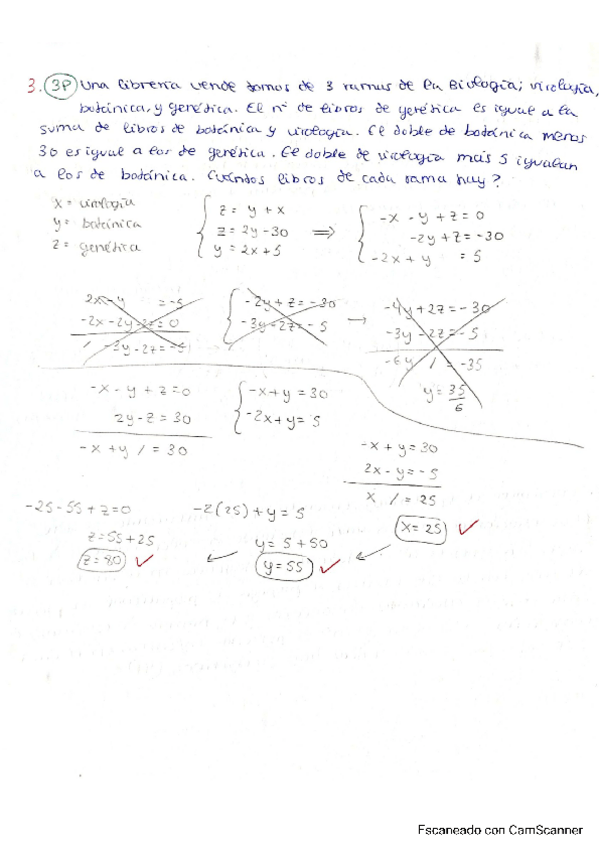 3. 3P Una librería vende tomos de 3 ramas de la Biología; virología,
botánica, y genética. El nº de libros de genética es igual a la
suma de libros de botánica y virología. El doble de botánica menos
30 es igual a los de genética. El doble de virología más 5 igualan
a los de botánica. Cuántos libros de cada rama hay?
x = virología
y = botánica
z = genética
z = y + x
z = 2y - 30
y = 2x + 5
⇒
-x - y + z = 0
-2y + z = -30
-2x + y = 5
2x - y = -5
-2x - 2y - 2z = 0
/ -3y - 2z = -5
-2y + z = -30
-3y - 2z = -5
→
-4y + 2z = -30
-3y - 2z = -5
-6y / = -35
y = 35/6
-x - y + z = 0
2y - z = 30
-x + y / = 30
-x + y = 30
-2x + y = 5
-x + y = 30
2x - y = -5
x / = 25
x = 25
-2(25) + y = 5
y = 5 + 50
y = 55
-25 - 55 + z = 0
z = 55 + 25
z = 80
Escaneado con CamScanner